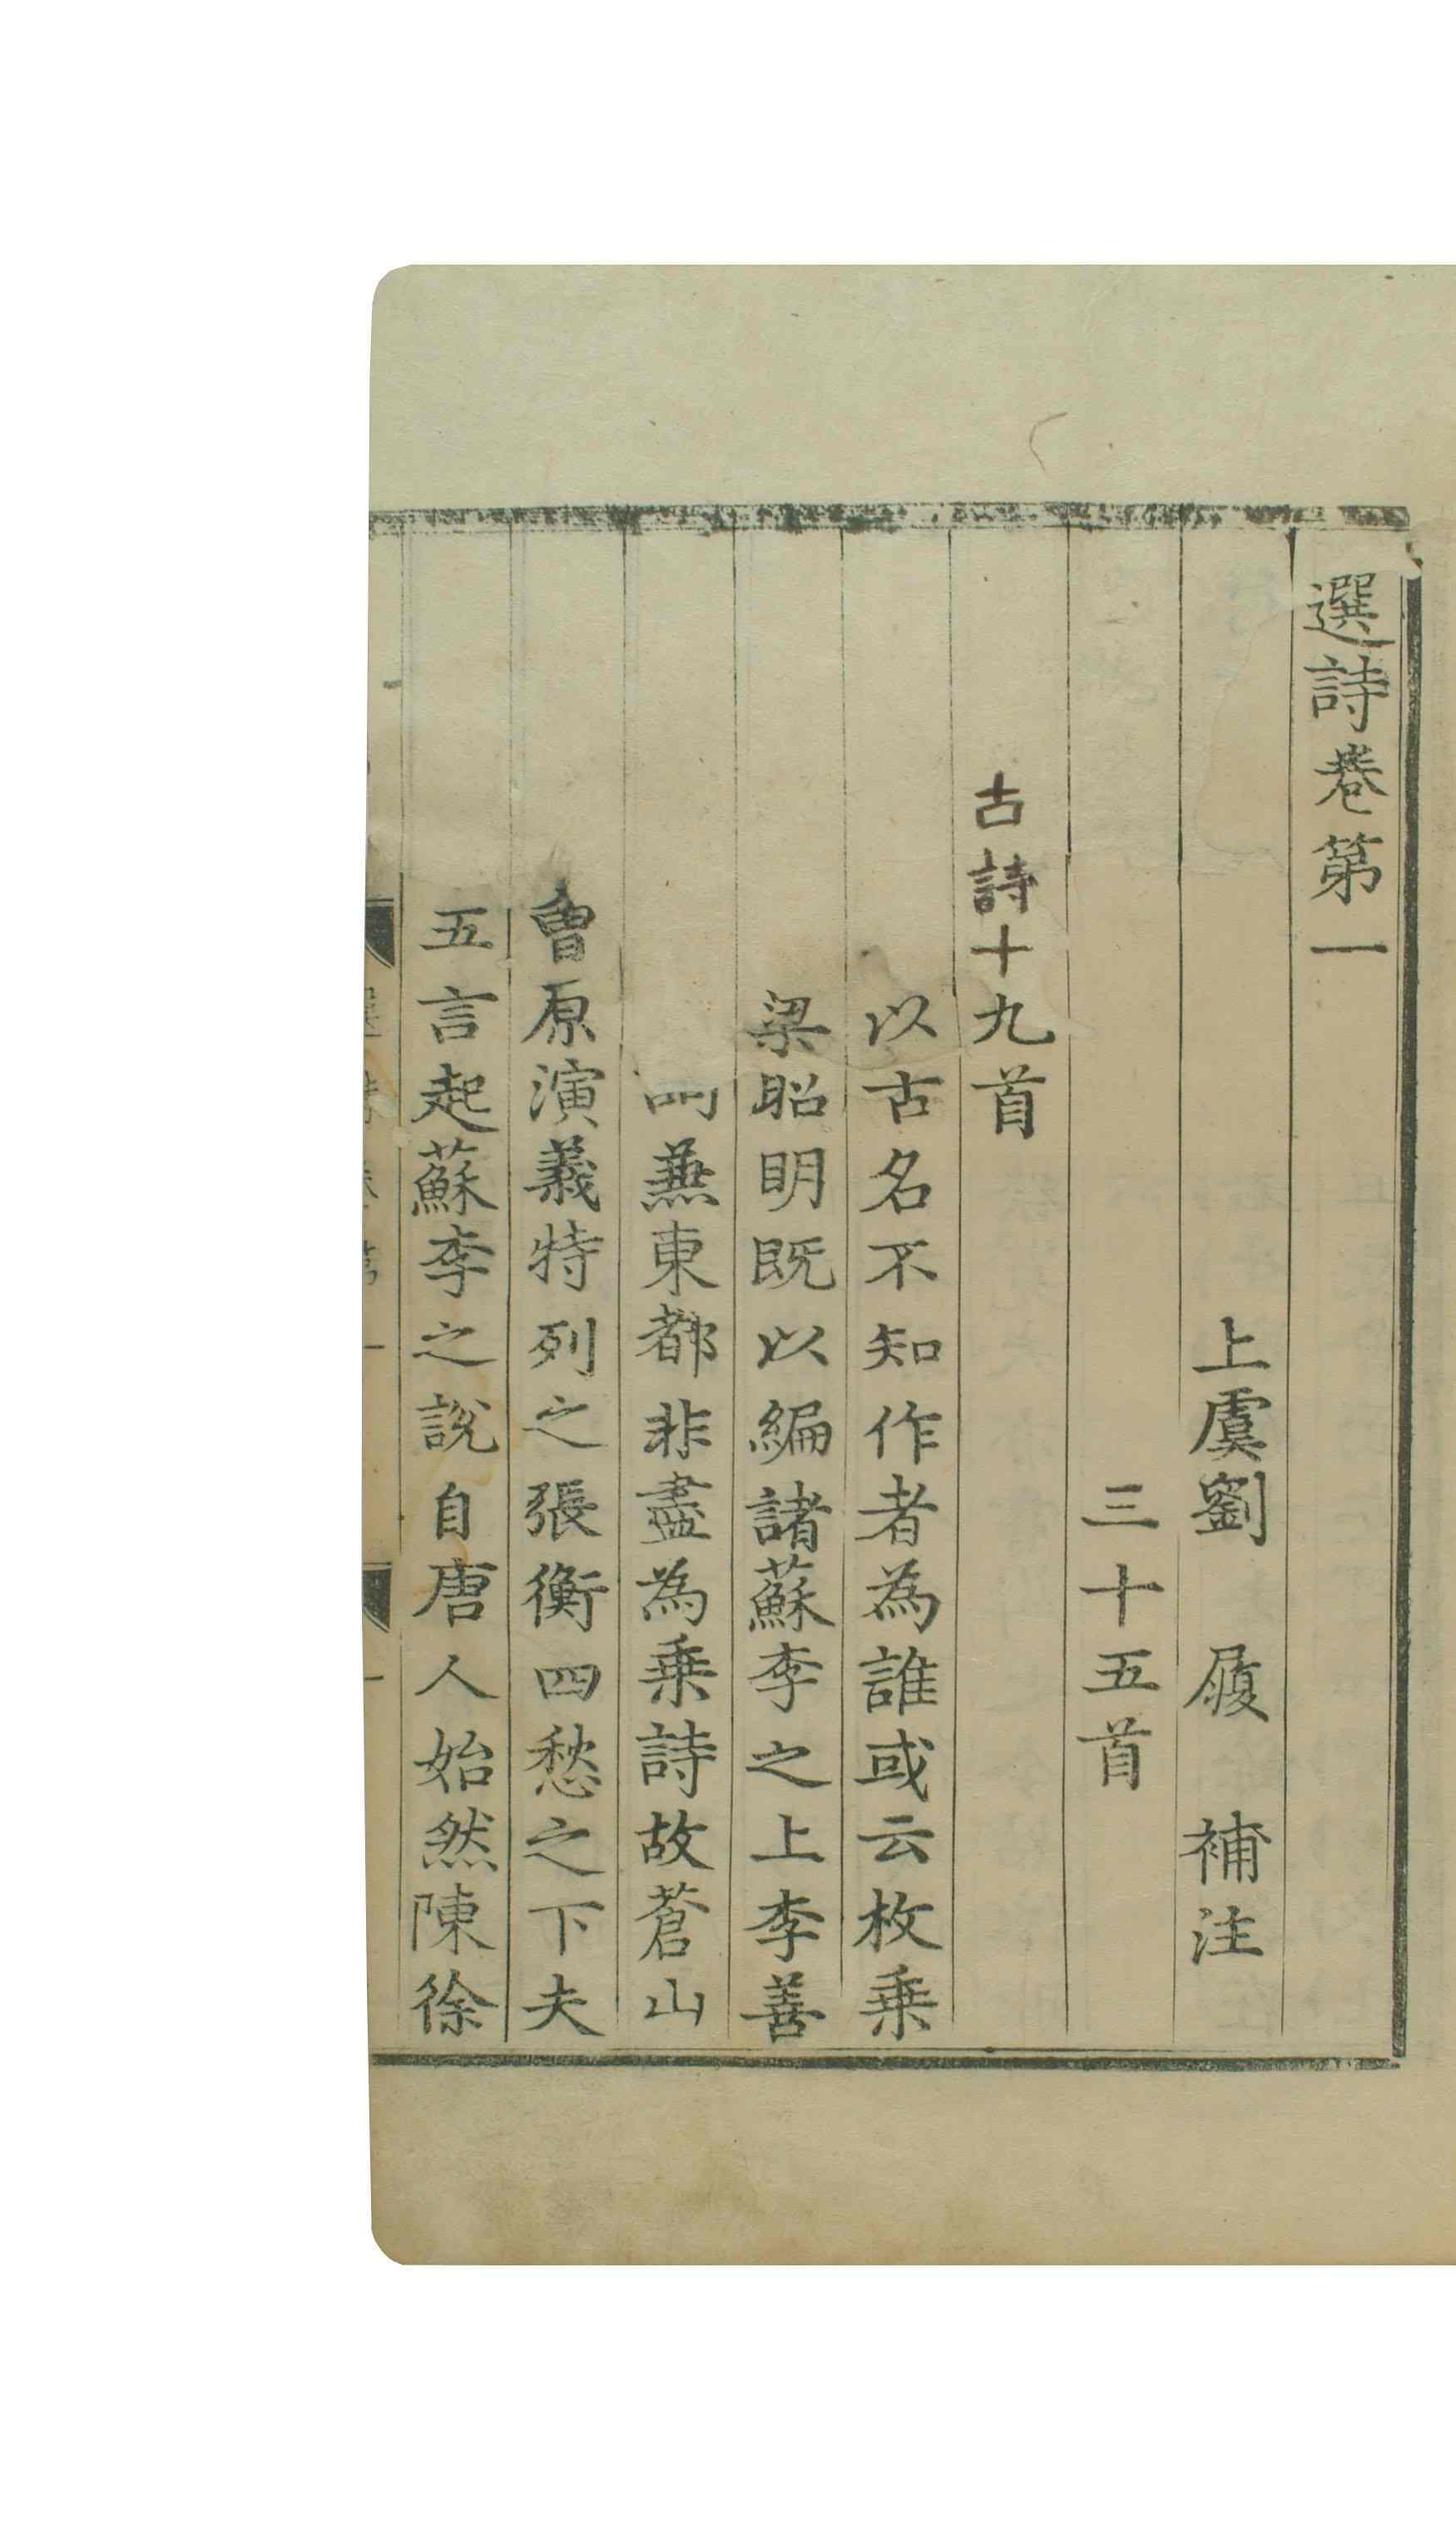 選詩卷第一
上虞劉 履 補注
三十五首
古詩十九首
以古名不知作者為誰或云枚乗
梁昭明既以編諸蘇李之上李善
兼東都非盡為乗詩故蒼山
曾原演義特列之張衡四愁之下夫
五言起蘇李之說自唐人始然陳徐
選詩卷第一